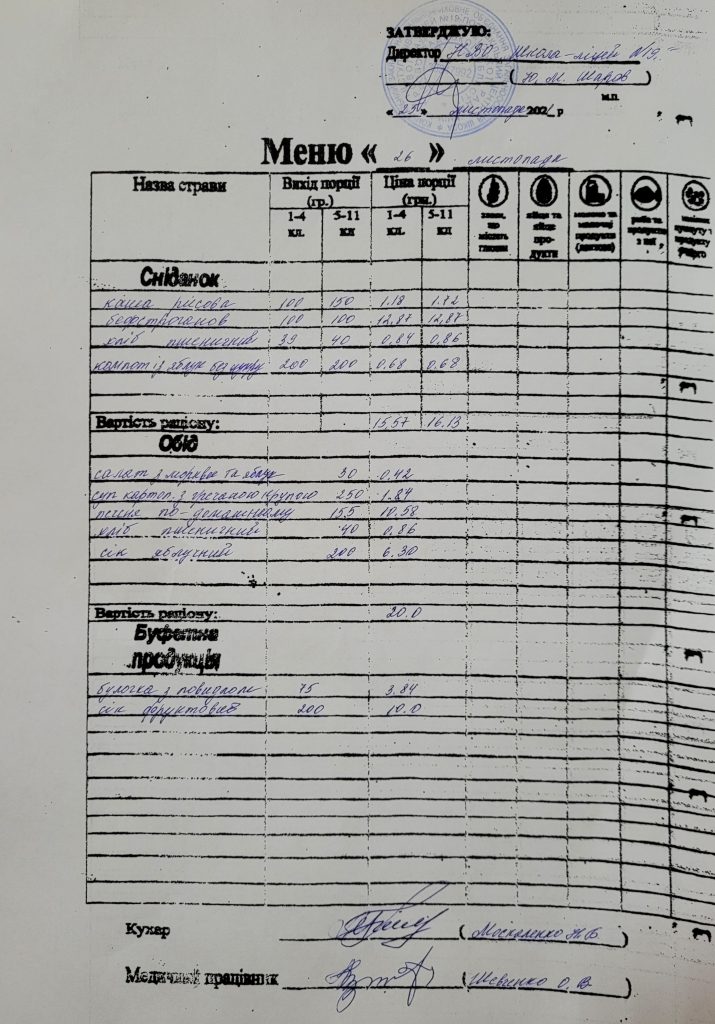 ЗАТВЕРДЖУЮ:
Директор НВО Школа-ліцей №19
(Ю. М. Шаров)
м.п.
«25» листопада 2021 р
Меню « 26 » листопада
Назва страви Вихід порції (гр.) Ціна порції (грн.)
1-4 кл. 5-11 кл 1-4 кл. 5-11 кл
злаки, що містять глютен
яйця та яйце продукти
молоко та молочні продукти (лактоза)
риба та продукти з неї
Сніданок
каша рисова 100 150 1.18 1.72
бефстроганов 100 100 12,87 12,87
хліб пшеничний 39 40 0.84 0,86
компот із яблук без цукру 200 200 0.68 0.68
Вартість раціону: 15.57 16.13
Обід
салат з моркви та яблук 30 0,42
суп картоп. з гречаною крупою 250 1.84
печеня по-домашньому 155 10,58
хліб пшеничний 40 0,86
сік яблучний 200 6.30
Вартість раціону: 20.0
Буфетна продукція
булочка з повидлом 75 3.84
сік фруктовий 200 10.0
Кухар (Москаленко Ж.В.)
Медичний працівник (Шевченко О.В.)